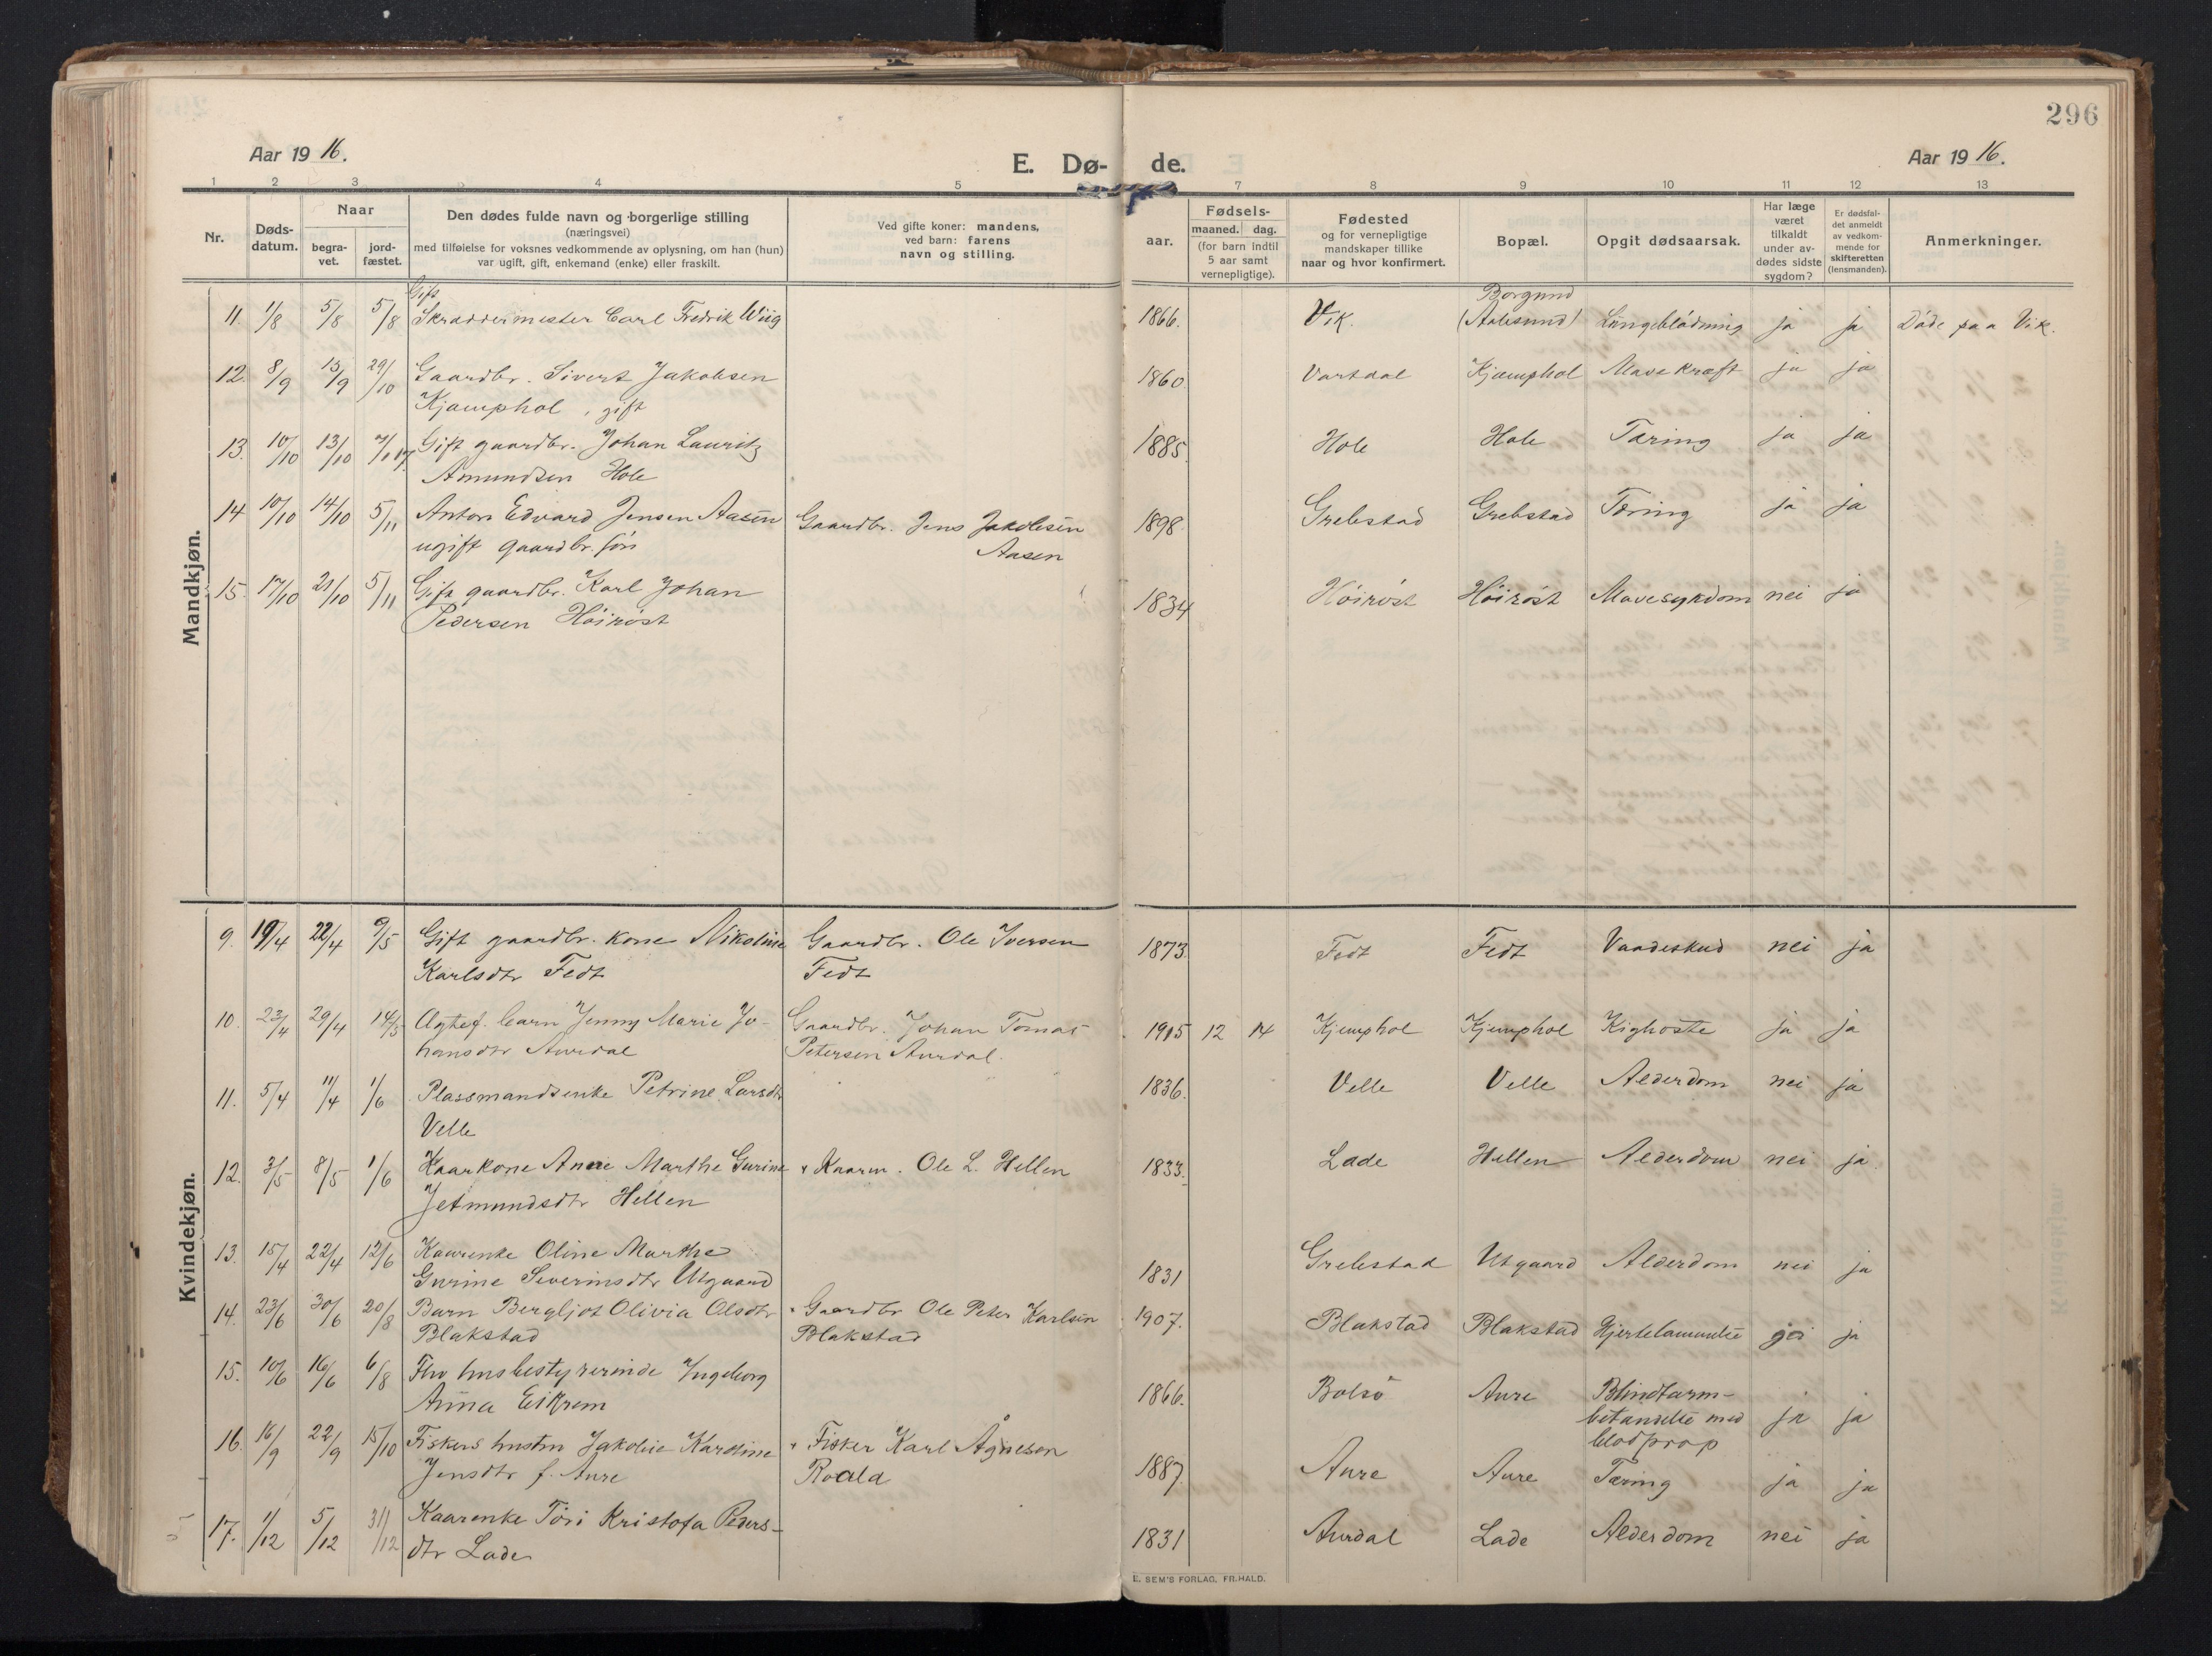 296
Aar 1916.
E. Dø-
de.
Aar 1916.
1 2 3 4 5 7 8 9 10 11 12 13
Nr.
Døds-
datum.
Naar
begra-
vet.
jord-
fæstet.
Den dødes fulde navn og borgerlige stilling
(næringsvei)
med tilføielse for voksnes vedkommende av oplysning, om han (hun)
var ugift, gift, enkemand (enke) eller fraskilt.
Ved gifte koner: mandens,
ved barn: farens
navn og stilling.
aar.
Fødsels-
maaned. dag.
(for barn indtil
5 aar samt
vernepligtige).
Fødested
og for vernepligtige
mandskaper tillike
naar og hvor konfirmert.
Bopæl.
Opgit dødsaarsak.
Har læge
været
tilkaldt
under av-
dødes sidste
sygdom?
Er dødsfal-
det anmeldt
av vedkom-
mende for
skifteretten
(lensmanden).
Anmerkninger.
Mandkjøn.
Gift Borgund
11. 1/8 5/8 5/8 Skræddermester Carl Fredrik Wiig 1866. Vik. (Aalesund) Lungeblødning ja ja Døde paa Vik.
12. 8/9 13/9 29/10 Gaardbr. Sivert Jakobsen 1860 Vartdal Kjæmphol Mavekræft ja ja
Kjæmphol, gift
13. 10/10 13/10 7/1 17. Gift gaardbr. Johan Lauritz 1885 Hole Hole Tæring ja ja
Amundsen Hole
14 10/10 14/10 5/11 Anton Edvard Jensen Aasen Gaardbr. Jens Jakobsen 1898. Grebstad Grebstad Tæring ja ja
ugift gaardbr. søn Aasen
15. 17/10 21/10 5/11 Gift gaardbr. Karl Johan 1834 Høirøst Høirøst Mavesygdom nei ja
Pedersen Høirøst
Kvindekjøn.
9. 19/4 22/4 9/5 Gift gaardbr. kone Nikoline Gaardbr. Ole Iversen 1873. Fedt Fedt Vaadeskud nei ja
Karlsdtr Fedt Fedt
10. 23/4 29/4 14/5 Ægtef. barn Jenny Marie Jo- Gaardbr. Johan Tomas 1915 12 14 Kjemphol Kjemphol Kighoste ja ja
hansdtr Aurdal Petersen Aurdal.
11. 5/4 11/4 1/6 Plassmandsenke Petrine Larsdtr 1836. Velle Velle Alderdom nei ja
Velle
12. 3/5 8/5 1/6 Kaarkone Anne Marthe Gurine Kaarm. Ole L. Hellen 1833. Lade Hellen Alderdom nei ja.
Jetmundsdtr Hellen
13. 15/4 22/4 12/6 Kaarenke Oline Marthe
Gurine Severinsdtr Utgaard 1831 Grebstad Utgaard Alderdom nei ja
14. 23/6 30/6 20/8 Barn Bergljot Olivia Olsdtr Gaardbr Ole Peter Karlsen 1907. Blakstad Blakstad ja
Blakstad Blakstad
15. 10/6 16/6 6/8 Fhv husbestyrerinde Ingeborg 1866. Bolsø Aure Blindtarm-
Anna Eikrem betændelse med ja ja
blodprop
16. 16/9 22/9 15/10 Fiskers hustru Jakobie Karoline Fisker Karl 1887. Aure Aure Tæring ja ja
Jensdtr f. Aure Roald
17. 1/12 5/12 31/12 Kaarenke Tøri Kristofa Peders- 1831 Aurdal Lade Alderdom nei ja
dtr Lade
E. SEM'S FORLAG, FR.HALD.